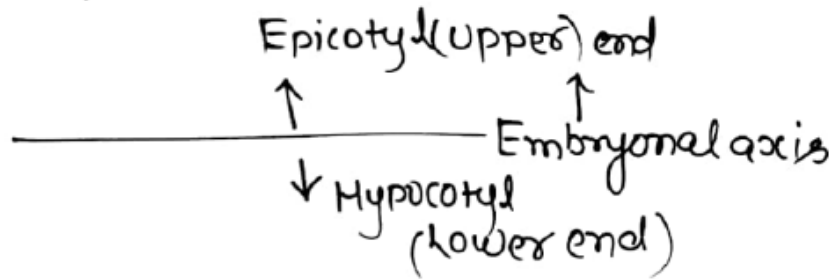 Epicotyl (upper) end
Embryonal axis
Hypocotyl
(Lower end)